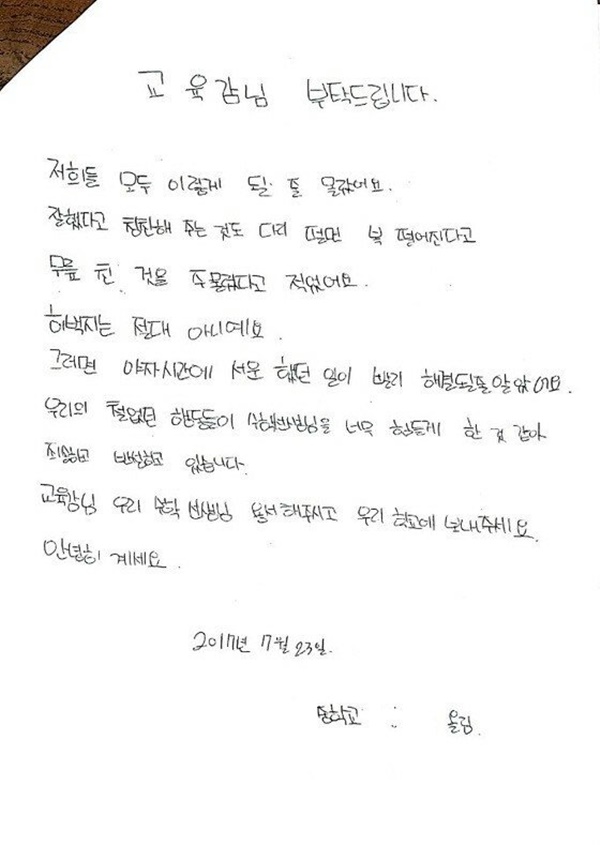 교육감님 부탁드립니다.
저희들 모두 이렇게 될 줄 몰랐어요.
잘했다고 칭찬해 주는 것도 다리 떨면 복 떨어진다고
무릎 친 것을 주물렀다고 적었어요.
허벅지는 절대 아니예요.
그러면 야자시간에 서운 했던 일이 빨리 해결될줄 알았어요.
우리의 철없던 행동들이 수학선생님을 너무 힘들게 한 것 같아
죄송하고 반성하고 있습니다.
교육감님 우리 수학 선생님 용서해주시고 우리 학교에 보내주세요.
안녕히 계세요.
2017년 7월 23일.
중학교 : 올림.